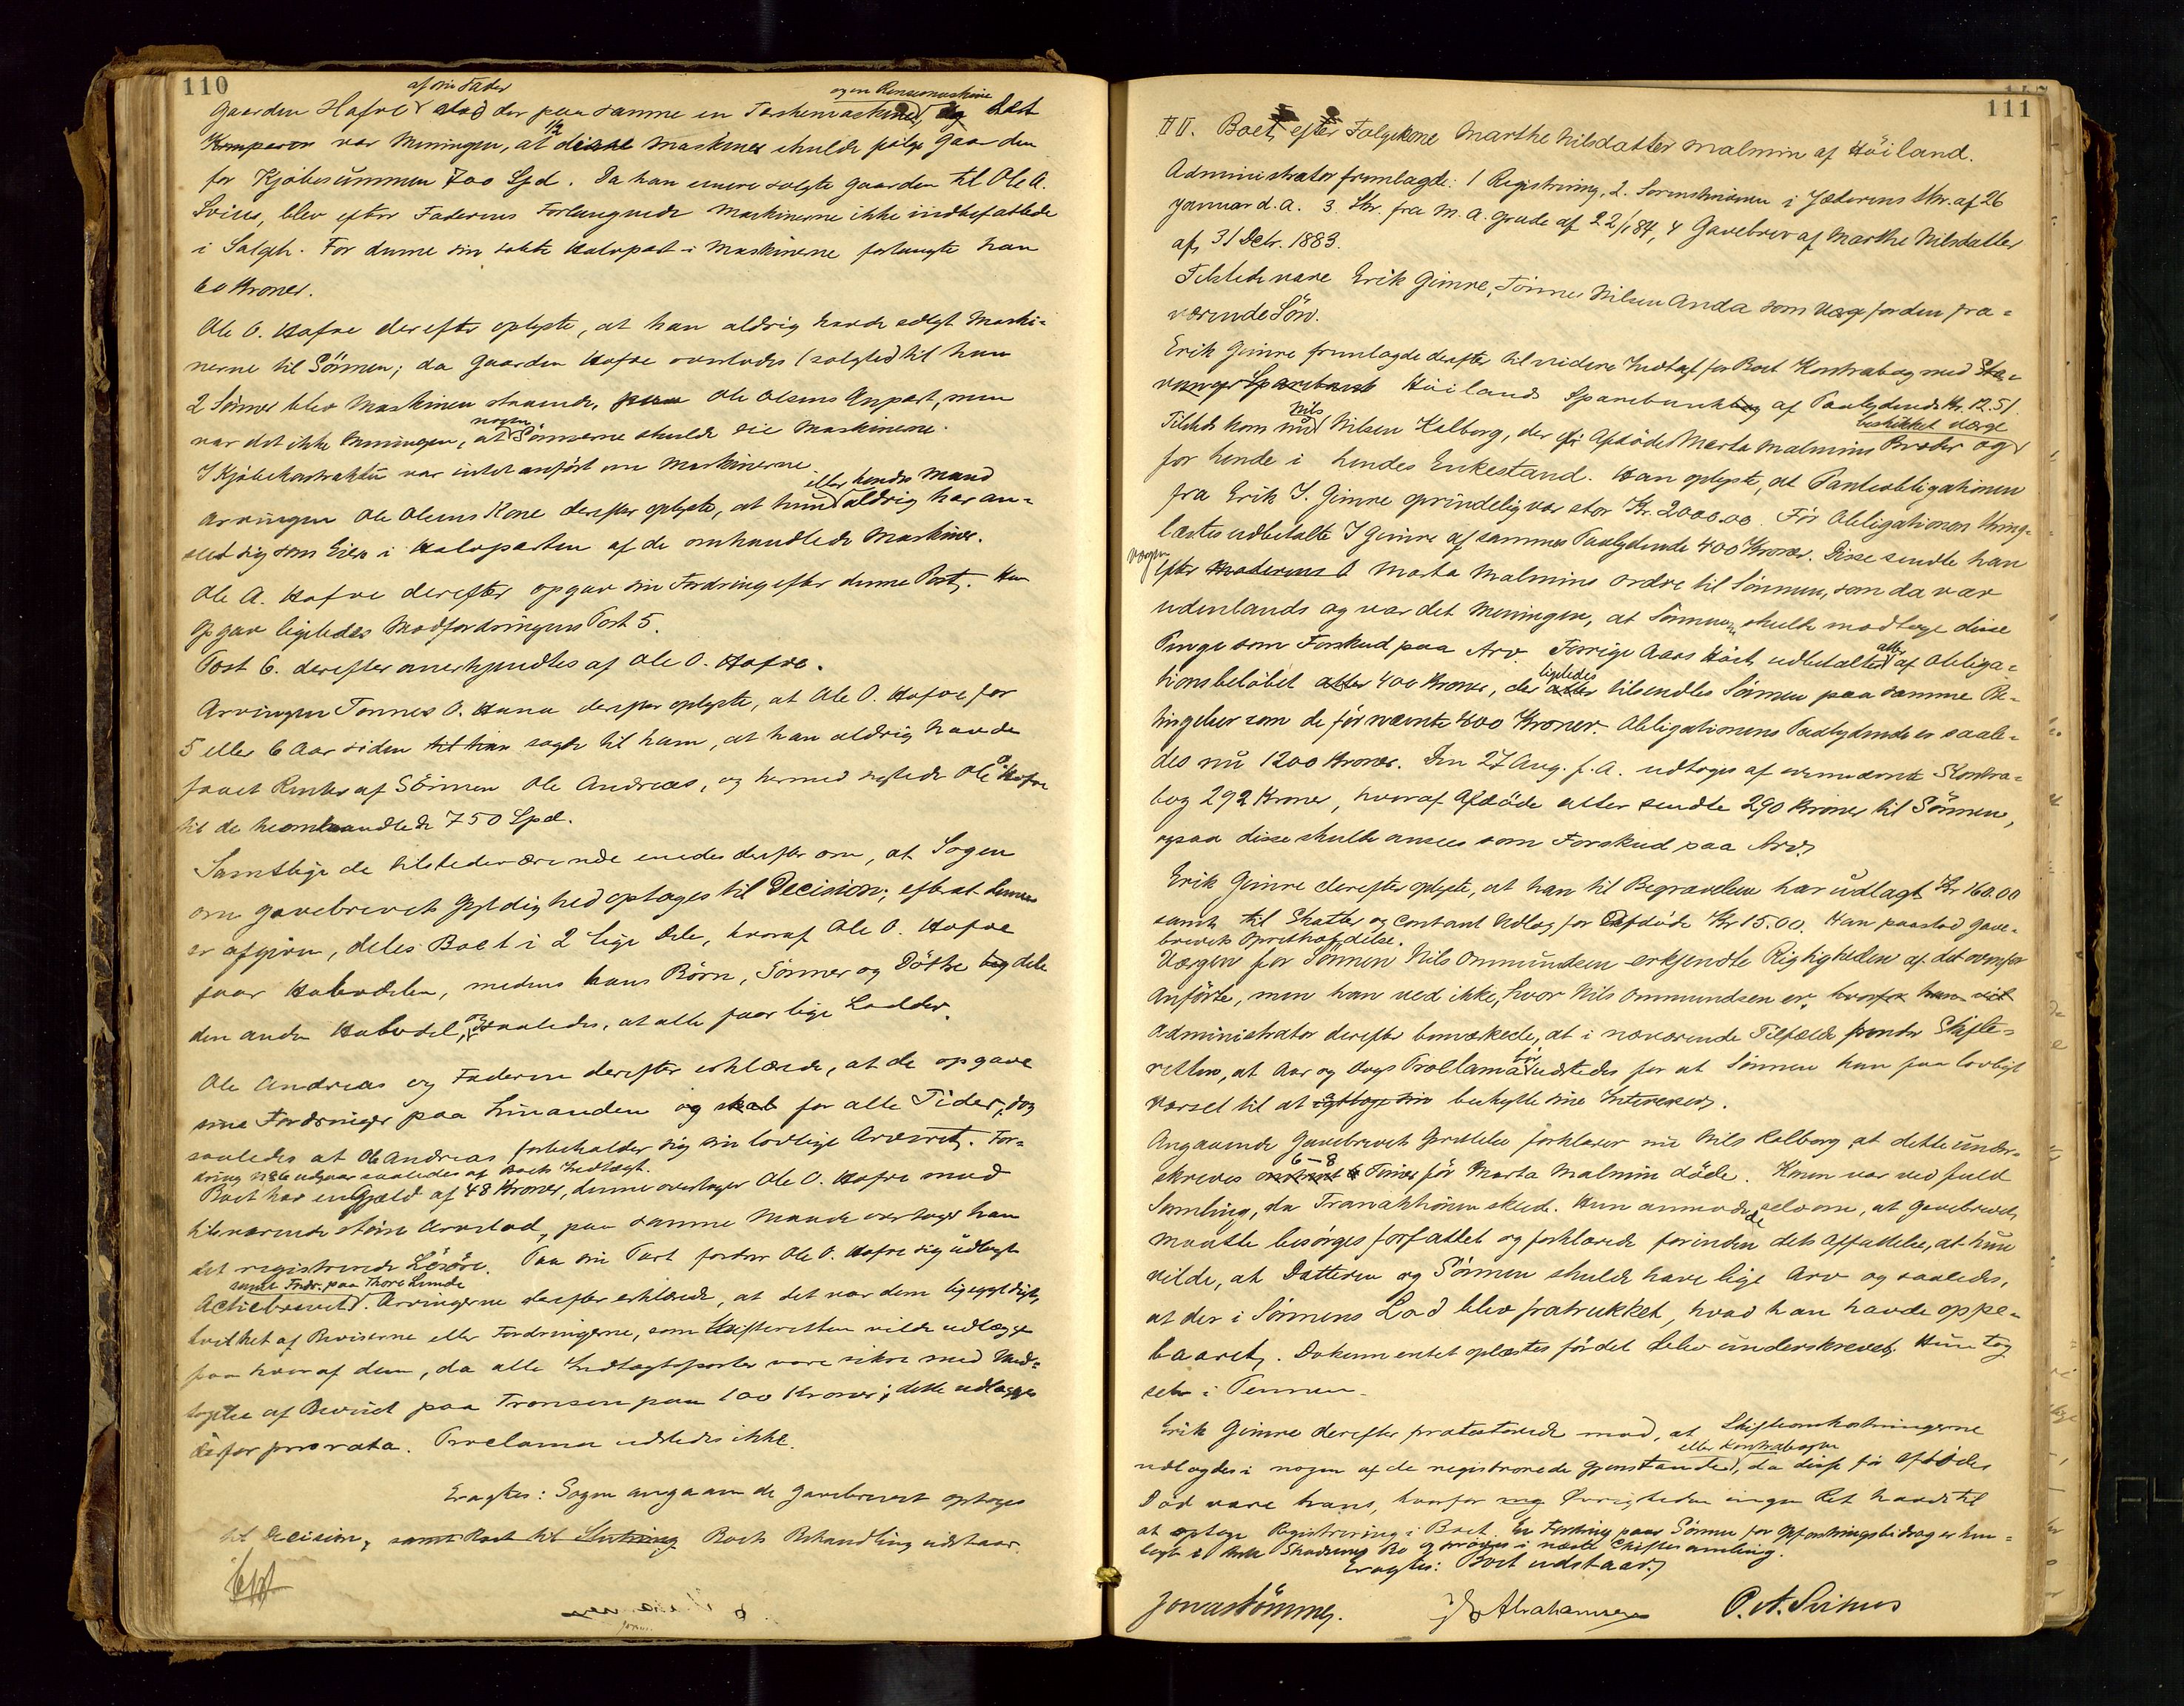 110
af sin Fader
og en Rensemaskine
Gaarden Hafre stod der paa samme en Tærskemaskine, og Det
Komparen var Meningen, at 1/2 disse Maskiner skulde følge Gaarden
for Kjøbesummen 700 Spd. Da han senere solgte Gaarden til Ole A.
Svines, blev efter Faderens Forlangende Maskinerne ikke indbefattede
i Salget. For denne sin Halvpart i Maskinerne forlangte han
60 Kroner.
Ole O. Hafre derefter oplyste, at han aldrig havde solgt Maski-
nerne til Sönnen; da Gaarden Hafre overlodes (solgtes) til hans
2 Sönner blev Maskinen staaende, paa Ole Olsens Anpart, men
var det ikke Meningen, at nogen Sönnerne skulde eie Maskinerne.
I Kjöbekontrakten var intet anfört om Maskinerne.
eller hendes Mand
Arvingen Ole Olsens Kone derefter oplyste, at hun aldrig har an-
seet sig som Eier i Halvparten af de omhandlede Maskiner.
Ole A. Hafre derefter opgav sin Fordring efter denne Post. Han
opgav ligeledes Modfordringens Post 5.
Post 6. derefter anerkjendtes af Ole O. Hafre.
Arvingen Tonnes O. Hana derefter oplyste, at Ole O. Hafre for
5 eller 6 Aar siden til han sagde til ham, at han aldrig havde
faaet Renter af Sönnen Ole Andreas, og hermed sigtede Ole O. Hafre
til de heromhandlede 750 Spd.
Samtlige de tilstedeværende enedes derefter om, at Sagen
om Gavebrevets Gyldighed optages til Decision; efterat denne
er afgiven, deles Boet i 2 lige Dele, hvoraf Ole O. Hafre
faar Halvdelen, medens hans Börn, Sönner og Döttre dele
den anden Halvdel, og saaledes, at alle faar lige Lodder.
Ole Andreas og Faderen derefter erklærede, at de opgave
sine Fordringer paa hinanden og skal for alle Tider, dog
saaledes at Ole Andreas forbeholder sig sin lovlige Arveret. For-
dring No 6 udgaar saaledes af Boets Indtægt.
Boet har en Gjæld af 48 Kroner, denne overtager Ole O. Hafre mod
tilsvarende större Arvelod, paa samme Maade overtager han
det registrerede Lösöre. Paa sin Part fordrer Ole O. Hafre sig udlagt
samt Fordr. paa Thore Lunde
Actiebrevet. Arvingerne derefter erklærede, at det var dem ligegyldigt,
hvilket af Beviserne eller Fordringerne, som Skifteretten vilde udlægge
paa hver af dem, da alle Indtægtsposter vare sikre med Und-
tagelse af Beviset paa Tronsen paa 100 Kroner; dette udlægges
derfor pro rata. Proclama udstedes ikke.
Eragtes: Sagen angaaende Gavebrevet optages
til Decision, samt Boet til Slutning Boets Behandling udstaar.
111
II. Boet efter Folgekone Marthe Nilsdatter Malmin af Höiland.
Administrator fremlagde: 1 Registrering, 2. Sorenskriveren i Jæderens Skr. af 26
Januar d. A. 3. Skr. fra M. A. Grude af 22/1 84, 4 Gavebrev af Marthe Nilsdatter
af 31 Debr. 1883.
Tilstede vare Erik Gimre, Tönnes Nilsen Anda som Værge for den fra-
værende Sön.
Erik Gimre fremlagde derefter til videre Indtægt for Boet Kontrabog med Sta-
vanger Sparebank Höilands Sparebank af Paalydende Kr. 12.51.
beskikket Værge
Tilstede kom nu Nils Nilsen Kalberg, der er Afdöde Marta Malmins Broder og
for hende i hendes Enkestand. Han oplyste, at Panteobligationen
fra Erik I. Gimre oprindelig var stor Kr. 2000.00. För Obligationen thing-
læstes udbetalte I Gimre af sammes Paalydende 400 Kroner. Disse sendte han
Værgen
efter Moderens Marta Malmins Ordre til Sönnen, som da var
udenlands og var det Meningen, at Sönnen skulde modtage disse
Penge som Forskud paa Arv. Forrige Aars Höst udbetaltes atter af Obliga-
tionsbelöbet atter 400 Kroner, der ligeledes tilsendtes Sönnen paa samme Be-
tingelser som de för nævnte 400 Kroner. Obligationens Paalydende er saale-
des nu 1200 Kroner. Den 27 Aug. f. A. udtoges af ovennævnte Kontra-
bog 292 Kroner, hvoraf Afdöde atter sendte 290 Kroner til Sönnen,
ogsaa disse skulde ansees som Forskud paa Arv.
Erik Gimre derefter oplyste, at han til Begravelsen har udlagt Kr 160.00
samt til Skatter og contant Udlæg for Afdöde Kr 15.00. Han paastod Gave-
brevets Opretholdelse.
Værgen for Sönnen Nils Ommundsen erkjendte Rigtigheden af det ovenfor
Anförte, men han ved ikke, hvor Nils Ommundsen er, hvorfor han vil
Administrator derefter bemærkede, at i nærværende Tilfælde fandt Skifte-
retten, at Aar og Dags Proclama bör udstedes for at Sönnen kan faa lovligt
Varsel til at iagttage sin beskytte sine Interesser.
Angaaende Gavebrevets Oprettelse forklarer nu Nils Kalberg at dette under-
skreves 6-8 Timer för Marta Malmin döde. Konen var ved fuld
Samling, da Transaktionen skede. Hun anmodede selv om, at Gavebrevet
maatte besörges forfattet og forklarede forinden dets Affattelse, at hun
vilde, at Datteren og Sönnen skulde have lige Arv og saaledes,
at der i Sönnens Lod blev fratrukket, hvad han havde oppe-
baaret. Dokumentet oplæstes för det blev underskrevet. Hun tog
selv i Pennen.
Erik Gimre derefter protesterede mod, at Skifteomkostningerne
eller Kontrabogen
udlagdes i nogen af de registrerede Gjenstande, da disse för Afdödes
Död vare hans, hvorfor Övrigheden ingen Ret havde til
at optage Registrering i Boet. En Fordring paa Sönnen for Opfostringsbidrag er hen-
lagt i Skadesens Bo og pröves i næste Skiftesamling.
Eragtes: Boet udstaar.
Jonas Tömmes. Abrahamsen O. A. Svines